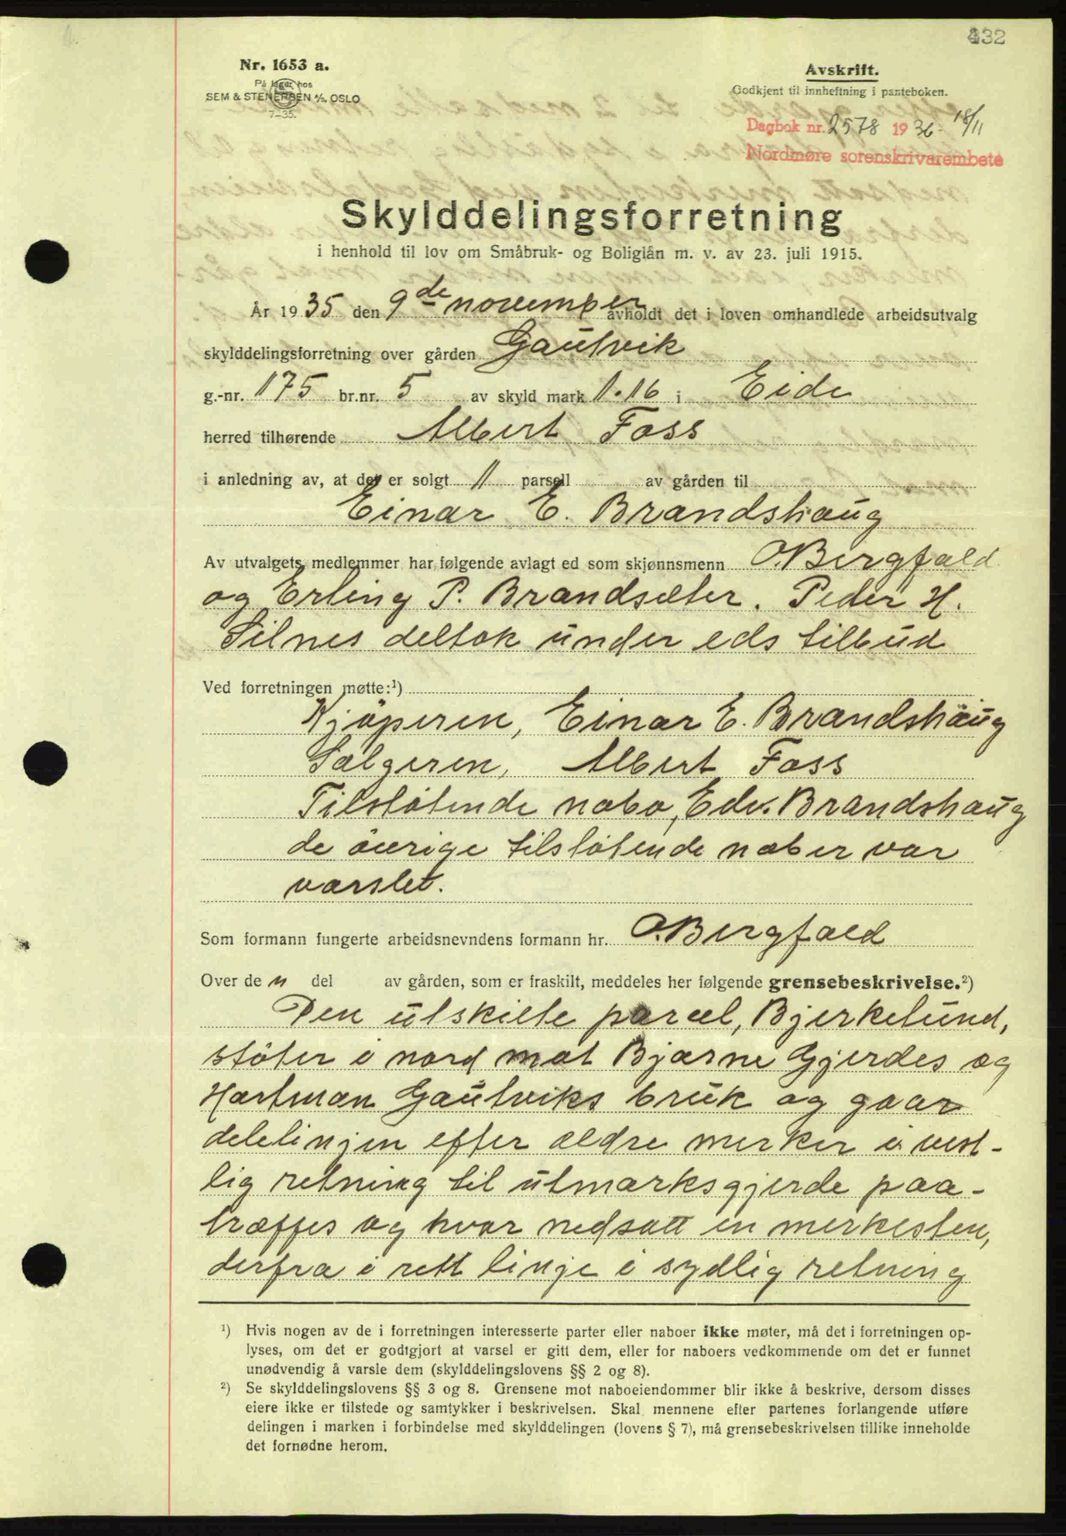 432
Nr. 1653 a.
På lager hos
SEM & STENERSEN A/S, OSLO
7-35.
Avskrift.
Godkjent til innheftning i panteboken.
Dagbok nr. 2578 1936 - 18/11
Nordmøre sorenskrivarembete
Skylddelingsforretning
i henhold til lov om Småbruk- og Boliglån m. v. av 23. juli 1915.
År 1935 den 9de november avholdt det i loven omhandlede arbeidsutvalg
skylddelingsforretning over gården Gautvik
g.-nr. 175 br.nr. 5 av skyld mark 1.16 i Eide
herred tilhørende Albert Foss
i anledning av, at det er solgt 1 parsell av gården til
Einar E. Brandshaug
Av utvalgets medlemmer har følgende avlagt ed som skjønnsmenn O. Bergfald
og Erling P. Brandsæter. Peder H.
Silnes deltok under eds tilbud
Ved forretningen møtte:¹)
Kjöperen, Einar E. Brandshaug
Sælgeren, Albert Foss
Tilstötende nabo, Edv. Brandshaug
de övrige tilstötende naboer var
varslet.
Som formann fungerte arbeidsnevndens formann hr. O. Bergfald
Over de n del av gården, som er fraskilt, meddeles her følgende grensebeskrivelse.²)
Den utskilte parcel, Bjerkelund,
stöter i nord mot Bjarne Gjerdes og
Hartman Gautviks bruk og gaar
delelinjen efter ældre merker i vest-
lig retning til utmarksgjerde paa-
træffes og hvor nedsatt en merkesten,
derfra i rett linje i sydlig retning
¹) Hvis nogen av de i forretningen interesserte parter eller naboer ikke møter, må det i forretningen op-
lyses, om det er godtgjort at varsel er gitt dem, eller for naboers vedkommende om det er funnet
unødvendig å varsle dem (skylddelingslovens §§ 2 og 8).
²) Se skylddelingslovens §§ 3 og 8. Grensene mot naboeiendommer blir ikke å beskrive, dersom disses
eiere ikke er tilstede og samtykker i beskrivelsen. Skal mennene efter partenes forlangende utføre
delingen i marken i forbindelse med skylddelingen (lovens § 7), må grensebeskrivelsen tillike inneholde
det fornødne herom.